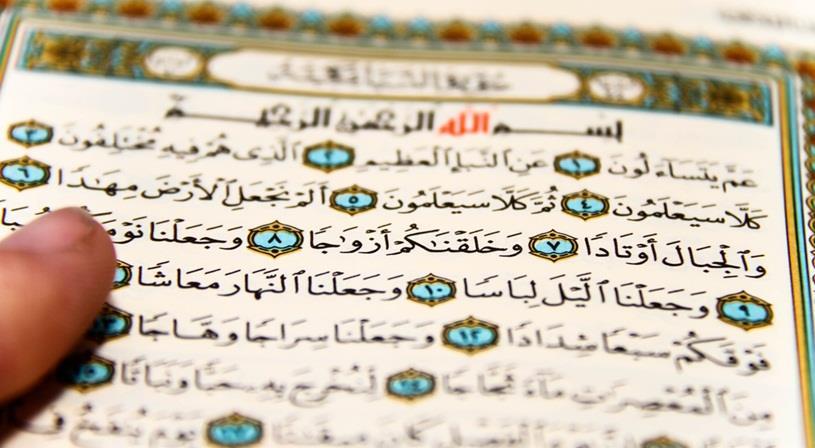 سورة النبأ مكية
بسم الله الرحمن الرحيم
عَمَّ يَتَسَآءَلُونَ ١ عَنِ ٱلنَّبَإِ ٱلْعَظِيمِ ٢ ٱلَّذِى هُمْ فِيهِ مُخْتَلِفُونَ ٣
كَلَّا سَيَعْلَمُونَ ٤ ثُمَّ كَلَّا سَيَعْلَمُونَ ٥ أَلَمْ نَجْعَلِ ٱلْأَرْضَ مِهَٰدًا ٦
وَٱلْجِبَالَ أَوْتَادًا ٧ وَخَلَقْنَٰكُمْ أَزْوَٰجًا ٨ وَجَعَلْنَا
٩ وَجَعَلْنَا ٱلَّيْلَ لِبَاسًا ١٠ وَجَعَلْنَا ٱلنَّهَارَ مَعَاشًا
فَوْقَكُمْ سَبْعًا شِدَادًا ١٢ وَجَعَلْنَا سِرَاجًا وَهَّاجًا ١٣
مِنَ ٱلْمُعْصِرَٰتِ مَآءً ثَجَّاجًا ١٤ لِّنُخْرِجَ بِهِۦ حَبًّا وَنَبَاتًا ١٥